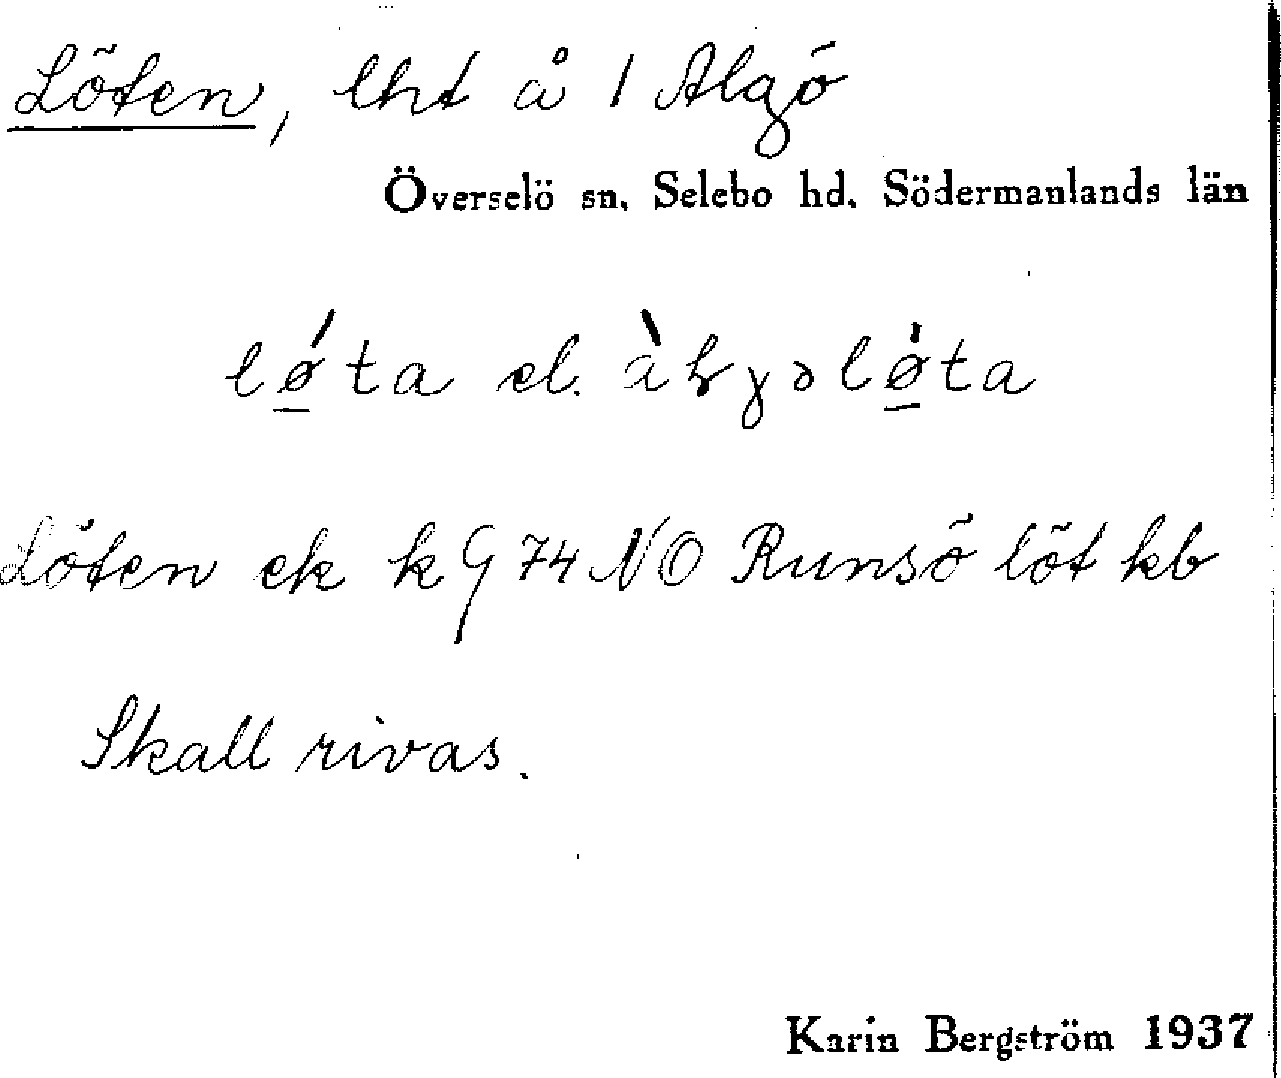 Löten, lht å 1 Algö
Överselö sn. Selebo hd. Södermanlands län
lǿ̱ta el. àlγəlø̱̀ta
Löten ek k G 74 NO Runsö löt kb
Skall rivas.
Karin Bergström 1937